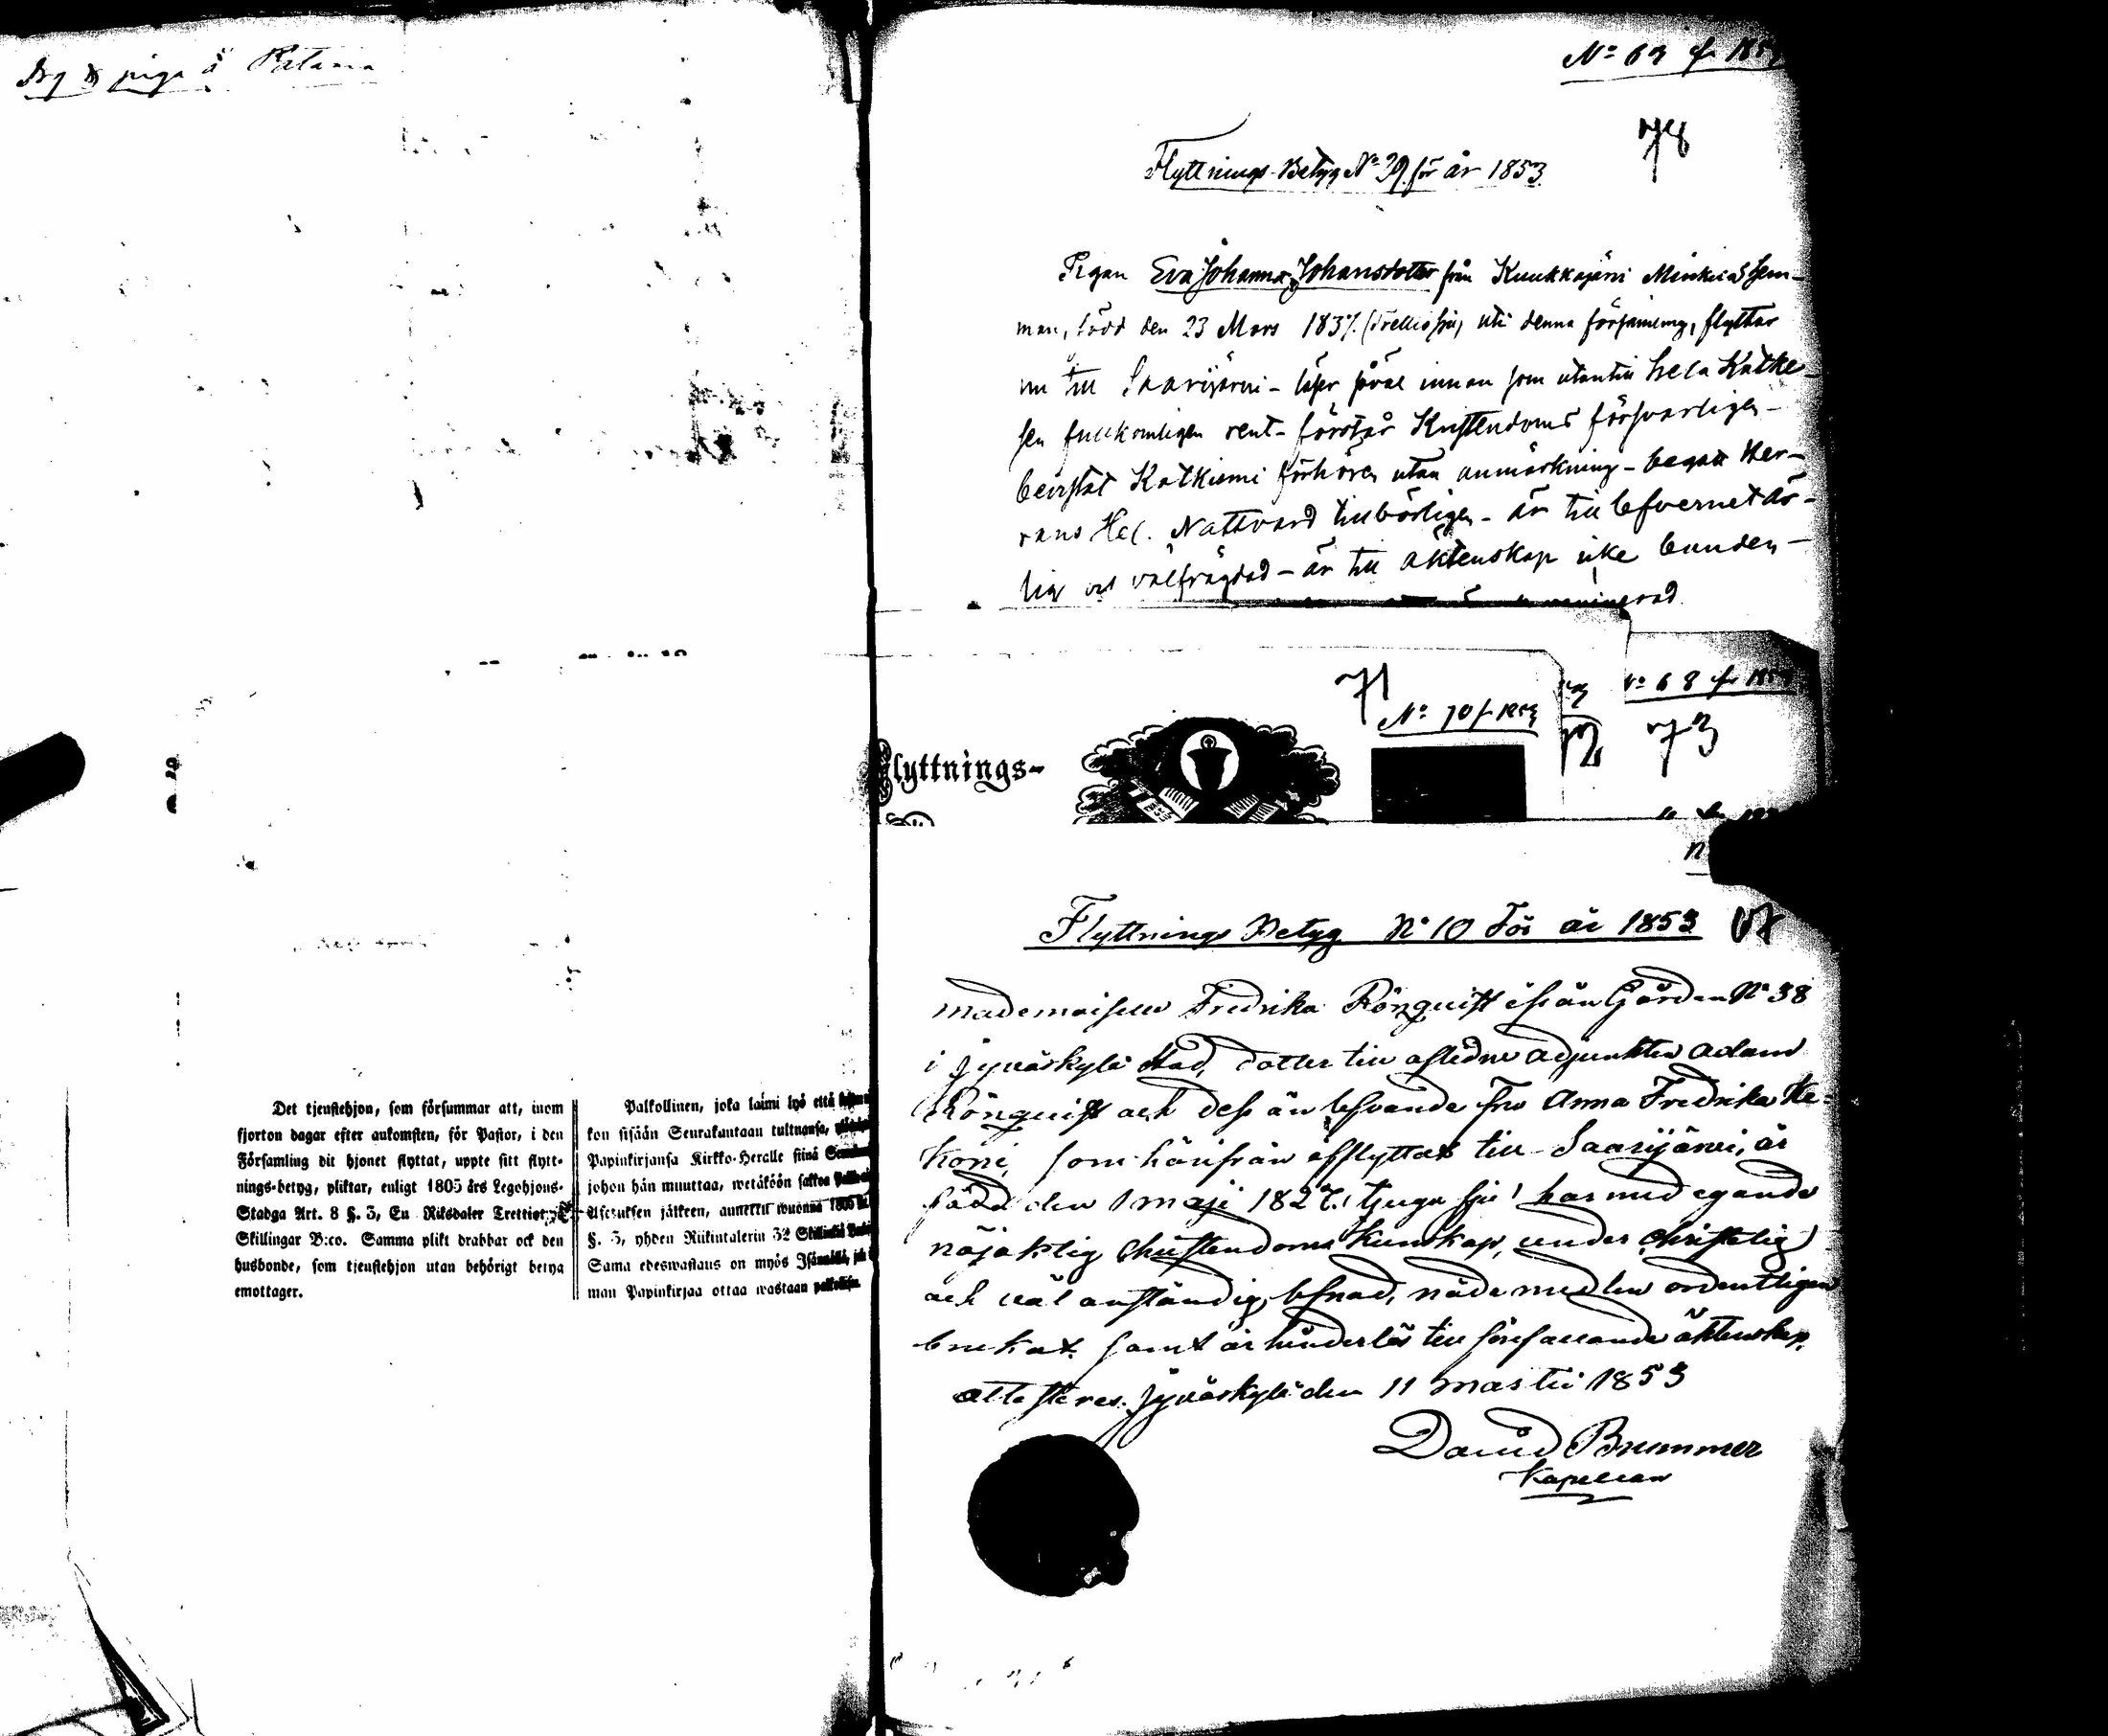 piga å Patana
Det tjenstehjon, som försummar att, inom
fjorton dagar efter ankomsten, för Pastor, i den
Församling dit hjonet flyttat, uppte sitt flytt-
nings-betyg, pliktar, enligt 1805 års Legohjons-
Stadga Art. 8 §. 3, En Riksdaler Trettiot
Skillingar B:co. Samma plikt drabbar ock den
husbonde, som tjenstehjon utan behörigt betyg
emottager.
Palkollinen, joka laimi lyö että
kon sisään Seurakuntaan tultuansa,
Papinkirjansa Kirkko-Heralle siinä
johon hän muuttaa, wetäköön sakkoa
Asetuksen jälkeen, annettu wuonna 1805
§. 3, yhden Riikintalerin 32 Skillinkiä
Sama edeswastaus on myös Isännällä,
man Papinkirjaa ottaa wastaan palkollisen.
No 63 fr 185
78
Flyttnings-Betyg No 39 för år 1853
Pigan Eva Johanna Johansdotter från Kuukkajärvi Minkiäs Hem-
man, född den 23 Mars 1837. (Trettiosju) uti denna församling, flyttar
nu till Saarijärvi - läser såväl innan som utantill hela Katke-
sen fullkomligen rent - förstår Kristendoms försvarligen -
bevistat Katkismi förhören utan anmärkning - begått Her-
rans Hel. Nattvard tillbörligen - är till lefvernet är-
lig och välfrägdad - är till äktenskap icke bunden -
71
No 70 f 1853
No 68 fr 185
73
72
Flyttnings-
Flyttnings Betyg No 10 För år 1853
67
Mademoiselle Fredrika Rönquist ifrån Gården No 38
i Jyväskylä Stad, dotter till aflidne Adjunkten Adam
Rönquist och dess än lefvande Fru Anna Fredrika He-
koni, som härifrån afflyttar till Saarijärvi, är
född den 1 Maji 1827. (tjugu sju) har med egande
nöjaktig Christendoms kunskap, under christelig
och väl anständig lefnad, nådemedlen ordentligen
brukat. samt är hinderlös till förefallande äktenskap,
attesteres. Jyväskylä den 11 Martii 1853
David Brummer
Kapellan